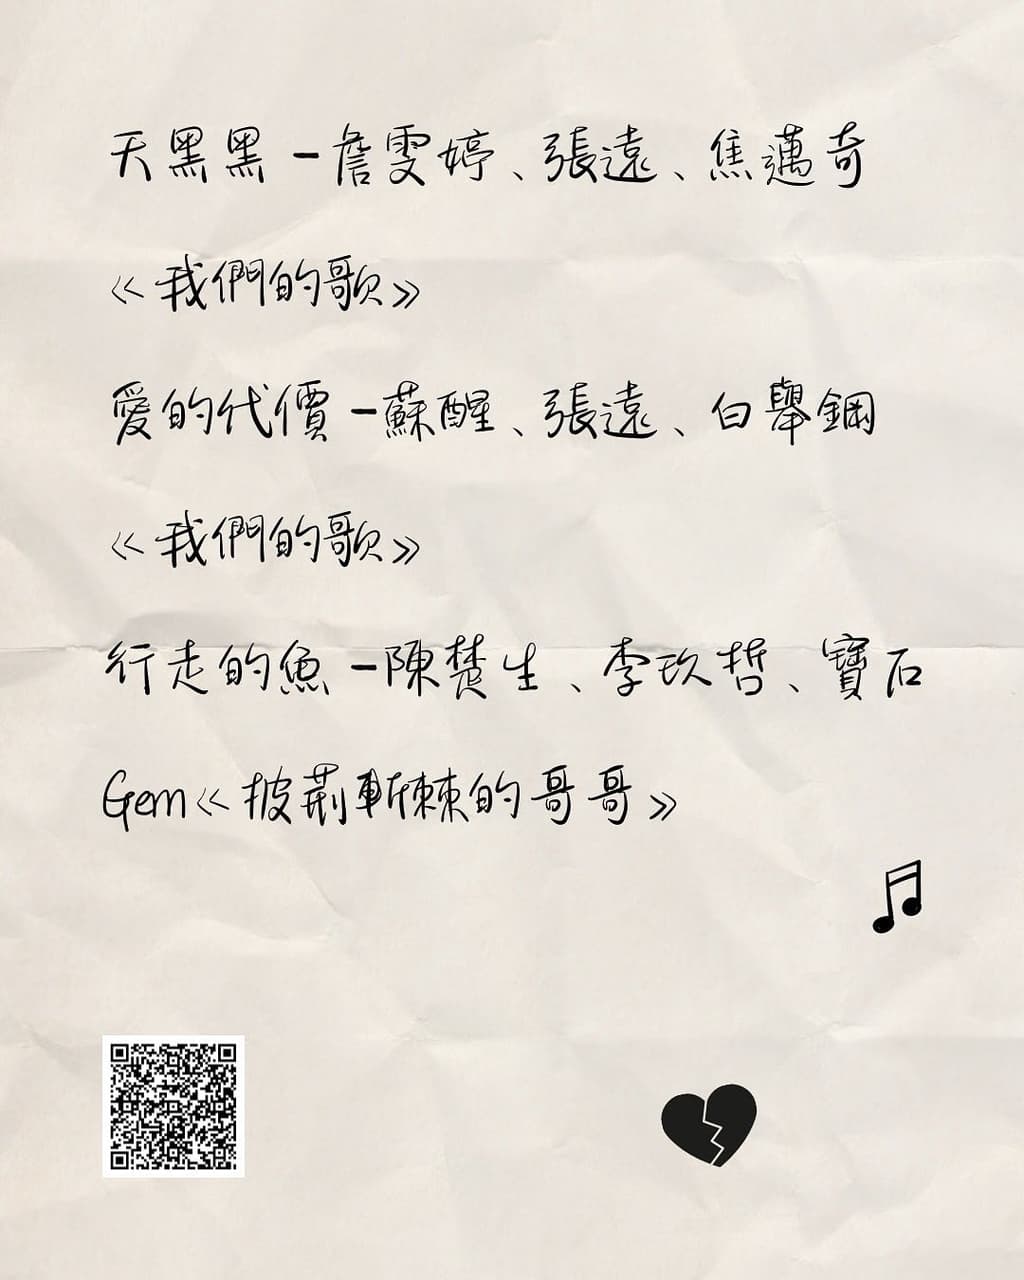 天黑黑-詹雯婷、張遠、焦邁奇
《我們的歌》
愛的代價-蘇醒、張遠、白舉鋼
《我們的歌》
行走的魚-陳楚生、李玖哲、寶石
Gem《披荊斬棘的哥哥》